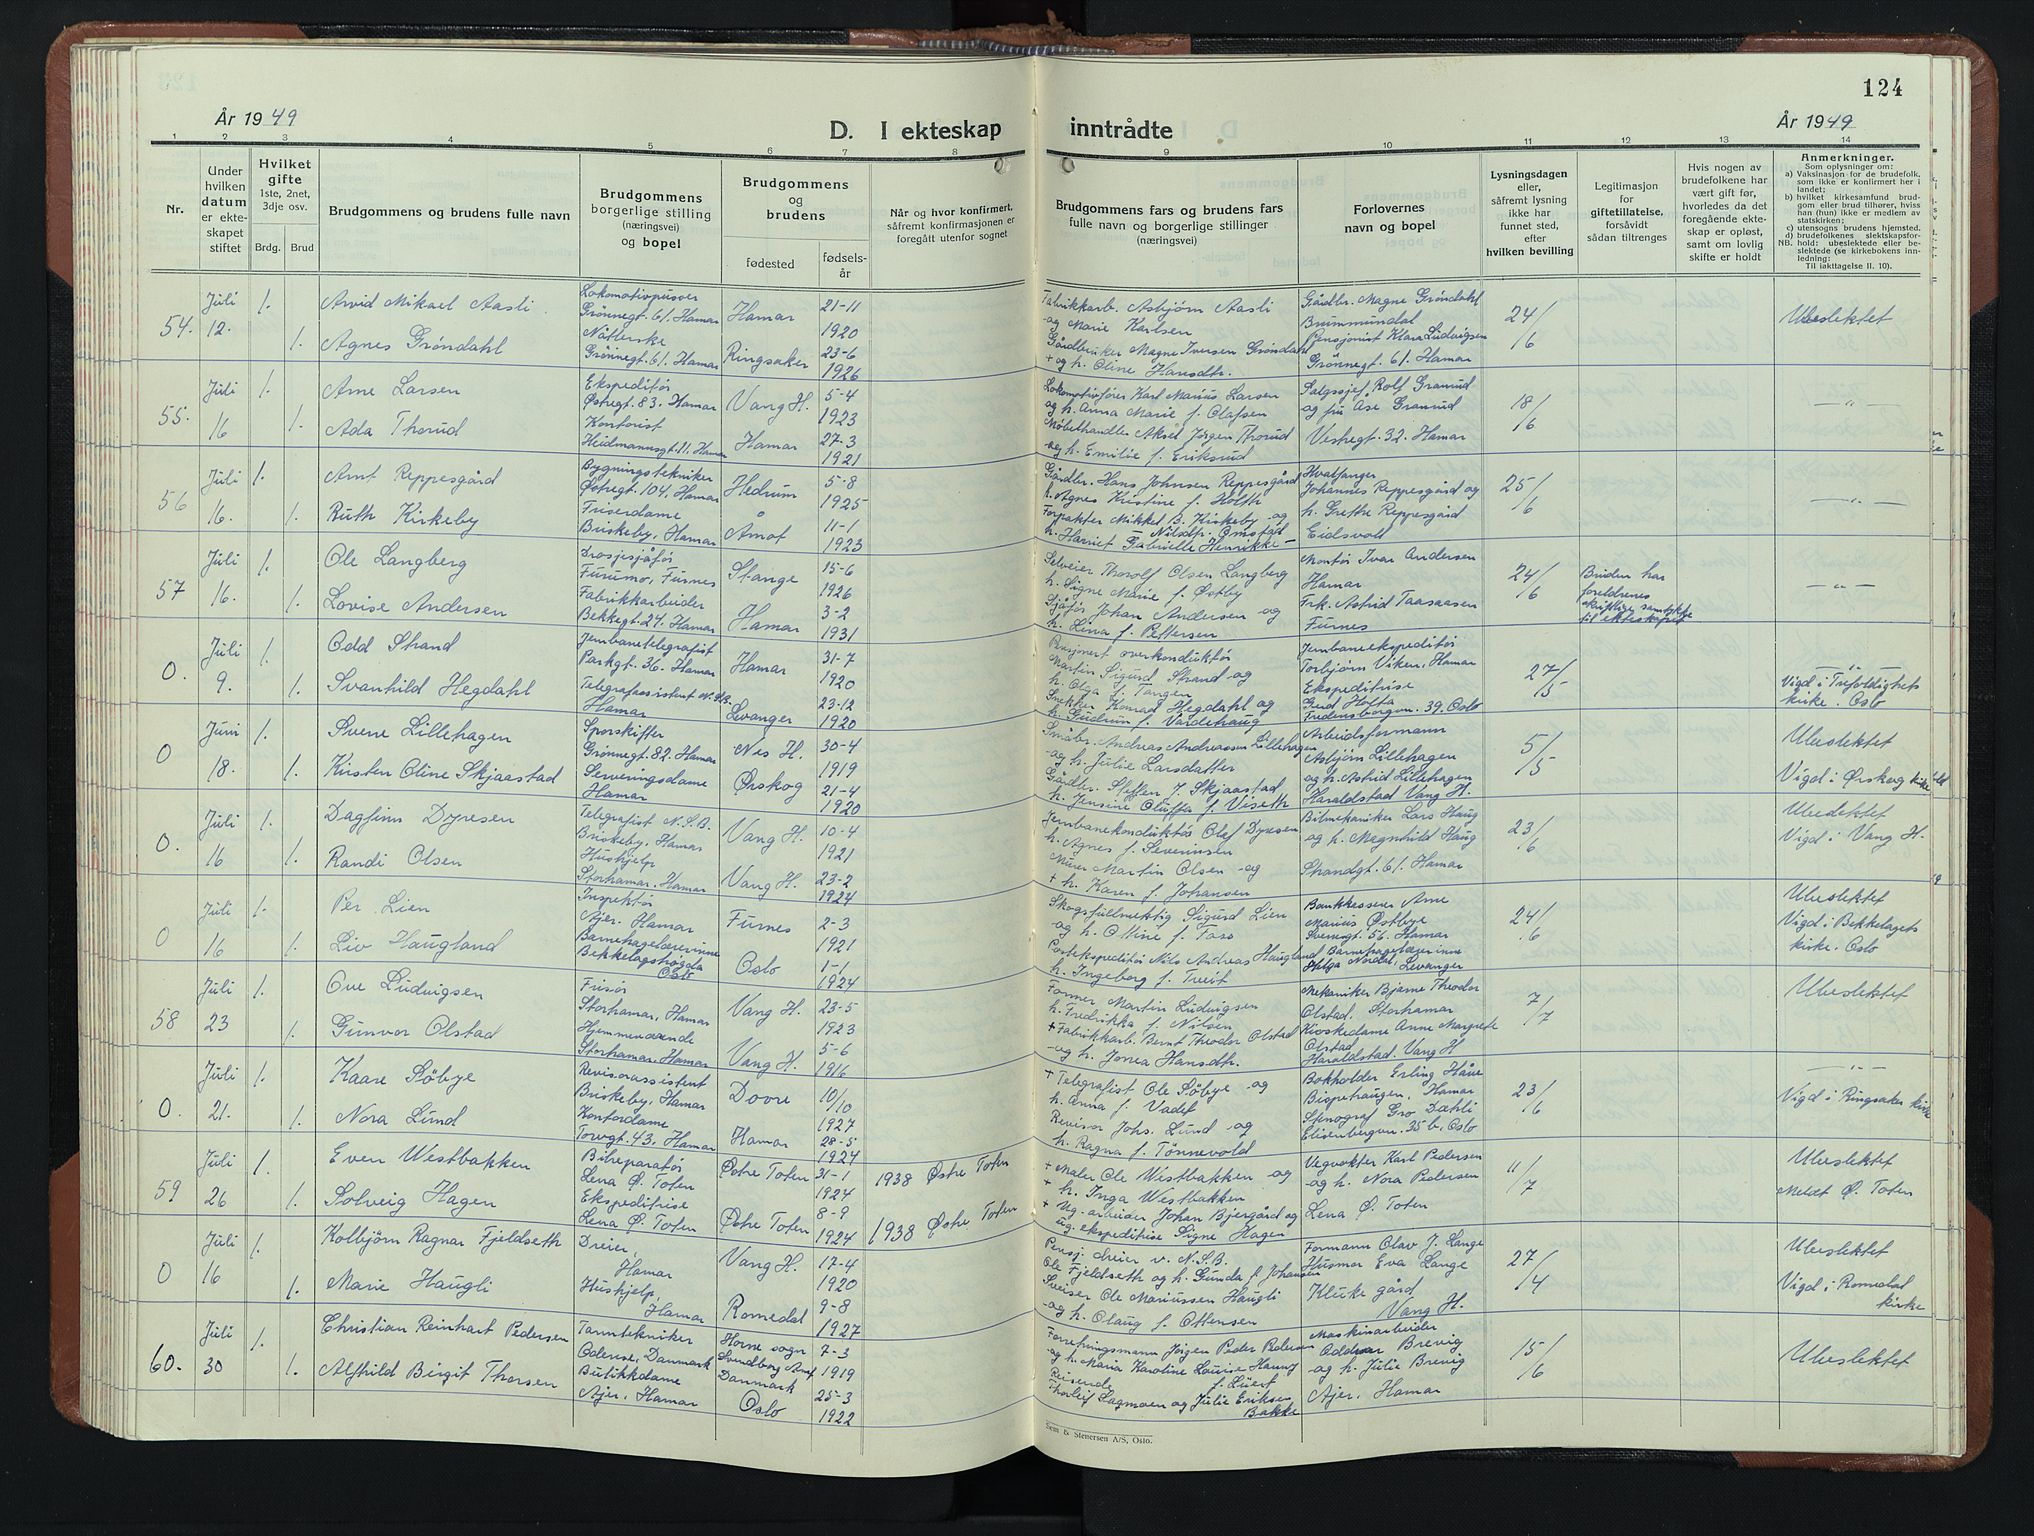 124
År 1949
D. I ekteskap inntrådte
År 1949
1 2 3 4 5 6 7 8 9 10 11 12 13 14
Nr.
Under hvilken datum er ekteskapet stiftet
Hvilket gifte
1ste, 2net, 3dje osv.
Brdg. Brud
Brudgommens og brudens fulle navn
Brudgommens borgerlige stilling (næringsvei) og bopel
Brudgommens og brudens
fødested
fødselsår
Når og hvor konfirmert, såfremt konfirmasjonen er foregått utenfor sognet
Brudgommens fars og brudens fars fulle navn og borgerlige stillinger (næringsvei)
Forlovernes navn og bopel
Lysningsdagen eller, såfremt lysning ikke har funnet sted, efter hvilken bevilling
Legitimasjon for giftetillatelse, forsåvidt sådan tiltrenges
Hvis nogen av brudefolkene har vært gift før, hvorledes da det foregående ekteskap er opløst, samt om lovlig skifte er holdt
Anmerkninger.
Som oplysninger om:
a) Vaksinasjon for de brudefolk, som ikke er konfirmert her i landet;
b) hvilket kirkesamfund brudgom eller brud tilhører, hvis han (hun) ikke er medlem av statskirken;
c) utensogns brudens hjemsted.
d) brudefolkenes slektskapsforhold: ubeslektede eller beslektede (se kirkebokens innledning:
NB. Til iakttagelse II. 10).
54. Juli 12. 1. Arvid Mikael Aasli Lokomotivpusser Grønnegt. 61. Hamar Hamar 21-11 1920 Fabrikkarb. Asbjørn Aasli og Marie Karlsen Gårdbr. Magne Grøndahl Brummundal 24/6 Ubeslektet
1. Agnes Grøndahl Nåterske Grønnegt. 61. Hamar Ringsaker 23-6 1926 Gårdbruker Magne Iversen Grøndahl + og h. Oline Hansdtr. Pensjonist Klara Ludvigsen Grønnegt. 61. Hamar
55. Juli 16 1. Arne Larsen Ekspeditør Østregt. 83. Hamar Vang H. 5-4 1923 Lokomotivfører Karl Marius Larsen og h. Anna Marie f. Olafsen Salgssjef Rolf Granrud og fru Åse Granrud 18/6 - " -
1. Ada Thorud Kontorist Heidmannsgt. 11. Hamar Hamar 27-3 1921 Møbelhandler Aksel Jørgen Thorud og h. Emilie f. Eriksrud Vestregt. 32. Hamar
56 Juli 16. 1. Arnt Reppesgård Bygningstekniker Østregt. 104. Hamar Hedrum 5-8 1925 Gårdbr. Hans Johnsen Reppesgård h. Agnes Kristine f. Holth Hvalfanger Johannes Reppesgård og h. Grethe Reppesgård 25/6 - " -
1. Ruth Kirkeby Friserdame Briskeby, Hamar Åmot 11-1 1923 Forpakter Mikkel B. Kirkeby og h. Harriet Gabrielle Henrikke Nilsdtr. Omstad Eidsvoll
57 Juli 16. 1. Ole Langberg Drosjesjåfør Furumo, Furnes Stange 15-6 1926 Selveier Thorolf Olsen Langberg h. Signe Marie f. Østby Montør Ivar Andersen Hamar 24/6 Bruden har foreldrenes skriftlige samtykke til ekteskapet - " -
1. Lovise Andersen Fabrikkarbeider Bekkegt. 27. Hamar Hamar 3-2 1931 Sjåfør Johan Andersen og h. Lina f. Pettersen Frk. Astrid Taasaasen Furnes
0. Juli 9. 1. Odd Strand Jernbanetelegrafist Parkgt. 36. Hamar Hamar 31-7 1920 Pensjonert overkonduktør Martin Sigurd Strand og h. Olga f. Tangen Jernbaneekspeditør Torbjørn Viken, Hamar 27/5 - " - Vigd i Trefoldighets kirke. Oslo
1. Svanhild Hegdahl Telegrafassistent N.S.B. Hamar Levanger 23-12 1920 Snekker Konrad Hegdahl og h. Gudrun f. Vardehaug Ekspeditrise Gerd Holta Fredensborgvn. 39. Oslo
0 Juni 18. 1. Svene Lillehagen Sporskifter Grønnegt. 82. Hamar Nes H. 30-4 1919 Småbr. Andreas Andreassen Lillehagen og h. Julie Larsdatter Arbeidsformann Asbjørn Lillehagen og h. Astrid Lillehagen 5/5 Ubeslektet
1. Kirsten Oline Skjaastad Serveringsdame Hamar Ørskog 21-4 1920 Gårdbr. Steffen J. Skjaastad h. Jensine Oluffa f. Viseth Haraldstad Vang H. Vigd i Ørskog kirke
0. Juli 16 1. Dagfinn Dyresen Telegrafist N.S.B. Briskeby, Hamar Vang H. 10-4 1921 Jernbanekonduktør Olaf Dyresen h. Agnes f. Severinsen Bilmekaniker Lars Haug og h. Magnhild Haug 23/6 Ubeslektet Vigd i Vang H.
1. Randi Olsen Hushjelp Storhamar. Hamar Vang H. 23-2 1924 Murer Martin Olsen og + h. Karen f. Johansen Strandgt. 61. Hamar
0 Juli 16 1. Per Lien Inspektør Ajer. Hamar Furnes 2-3 1921 Skogsfullmektig Sigurd Lien og h. Oline f. Taso Bankkasserer Arne Marius Østbye Svenegt. 56. Hamar 24/6 Ubeslektet
1. Liv Haugland Barnehagelærerinne Bekkelagshøgda Oslo Oslo 1-1 1924 Postekspeditør Nils Andreas Haugland h. Ingeborg f. Treit Barnehagelærerinne Helga Nordal, Levanger Vigd i Bekkelagets kirke. Oslo
58 Juli 23 1. Ove Ludvigsen Frisør Storhamar. Hamar Vang H. 23-5 1923 Former Martin Ludvigsen h. Fredrikka f. Nilsen Mekaniker Bjarne Theodor Olstad. Storhamar 7/7 Ubeslektet
1. Gunvor Olstad Hjemmeværende Storhamar. Hamar Vang H. 5-6 1916 + Fabrikkarb. Bernt Theodor Olstad og h. Jonea Hansdtr. Kioskedame Anne Margrete Olstad Haraldstad. Vang H
0. Juli 21. 1. Kaare Søbye Revisorassistent Briskeby, Hamar Dovre 10/10 1927 + Telegrafist Ole Søbye og h. Anna f. Vadet Bokholder Erling Håve Bispehaugen, Hamar 23/6 - " -
1. Nora Lund Kontordame Torvgt. 43. Hamar Hamar 28-5 1924 Revisor Johs. Lund og h. Ragna f. Tønnevold Stenograf Gro Dæhli Elisenbergvn. 35 b. Oslo Vigd i Ringsaker kirke
59 Juli 26 1. Even Westbakken Bilreparatør Lena Ø. Toten Østre Toten 31-1 1924 1938 Østre Toten + Maler Ole Westbakken og + h. Inga Westbakken Vegvokter Karl Pedersen og h. Nora Pedersen 11/7 Ubeslektet
1. Solveig Hagen Ekspeditrise Lena Ø. Toten Østre Toten 8-9 1924 1938 Østre Toten + Ug. arbeider Johan Bjergård og ug. ekspeditrise Signe Hagen Lena Ø. Toten Meldt Ø. Toten
0 Juli 16 1. Kolbjørn Ragnar Fjeldseth Dreier, Hamar Vang H. 17-4 1920 Pensj. dreier v. N.S.B. Ole Fjeldseth og h. Gunda f. Johansen Formann Olav J. Lange Husmor Eva Lange 27/4 Ubeslektet
1. Marie Haugli Hushjelp, Hamar Romedal 9-8 1927 Sveiser Ole Mariussen Haugli og h. Olaug f. Ottensen Kluke gård Vang H. Vigd i Romedal kirke
60. Juli 30 1. Christian Reinhart Pedersen Tanntekniker Odense, Danmark Horne sogn Svendborg Amt Danmark 7-3 1919 Forretningsmann Jørgen Peder Pedersen og h. Maria Karoline Louise Henny f. Luert Maskinarbeider Oddvar Brevig og h. Julie Brevig 15/6 Ubeslektet
1. Alfhild Birgit Thorsen Butikkdame Ajer. Hamar Oslo 25-3 1922 Reisende Thorleif Lagmoen og Julie Eriksen Bakke Ajer. Hamar
Sem & Stenersen A/S, Oslo.